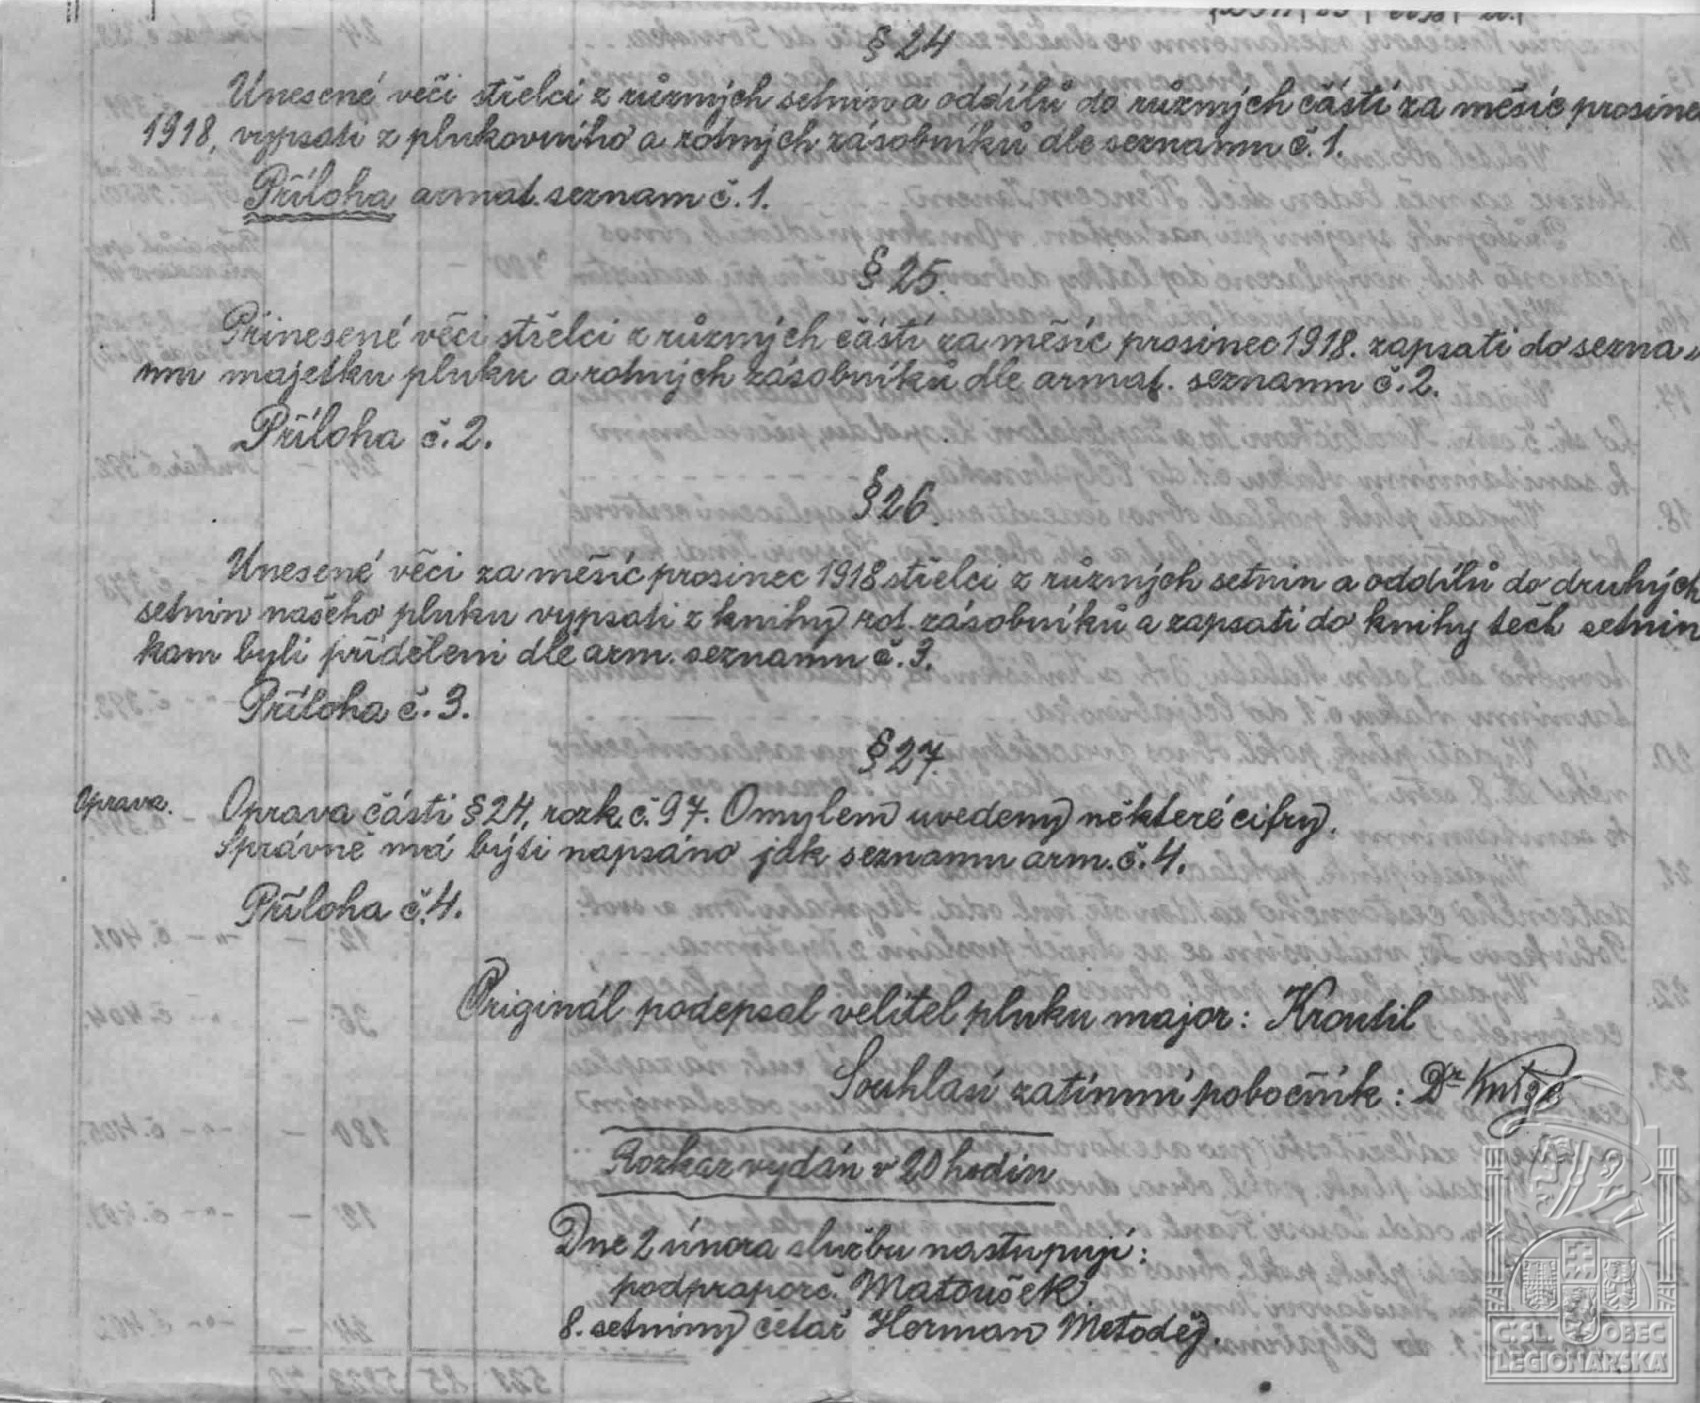 § 24
Unesené věci střelci z různých setnin a oddílů do různých částí za měsíc prosinec
1918, vypsati z plukovního a rotných zásobníků dle seznamu č. 1.
Příloha armat. seznam č. 1.
§ 25.
Přinesené věci střelci z různých částí za měsíc prosinec 1918. zapsati do sezna„
mu majetku pluku a rotných zásobníků dle armat. seznamu č. 2.
Příloha č. 2.
§ 26.
Unesené věci za měsíc prosinec 1918 střelci z různých setnin a oddílů do druhých
setnin našeho pluku vypsati z knihy rot. zásobníků a zapsati do knihy těch setnin
kam byli přiděleni dle arm. seznamu č. 3.
Příloha č. 3.
§ 27.
Oprava. Oprava části § 24, rozk. č. 97. Omylem uvedeny některé cifry.
Správně má býti napsáno jak seznamu arm. č. 4.
Příloha č. 4.
Originál podepsal velitel pluku major: Kroutil
Souhlasí zatímní pobočník: Dr
Rozkaz vydán v 20 hodin
Dne 2 února službu nastupují:
podpraporč. Matoušek
8. setniny četař Herman Metoděj.
Č. SL. OBEC
LEGIONÁŘSKÁ